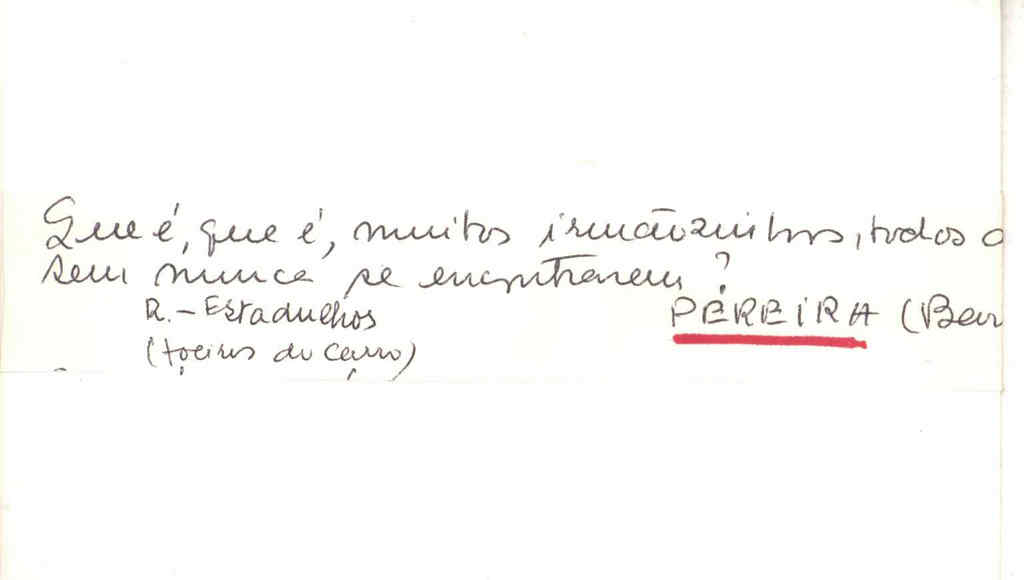 Que é, que é, muitos irmãozinhos, todos
sem nunca se encontrarem?
R. - Estadulhos
PEREIRA (Bar
(foeiros do carro)